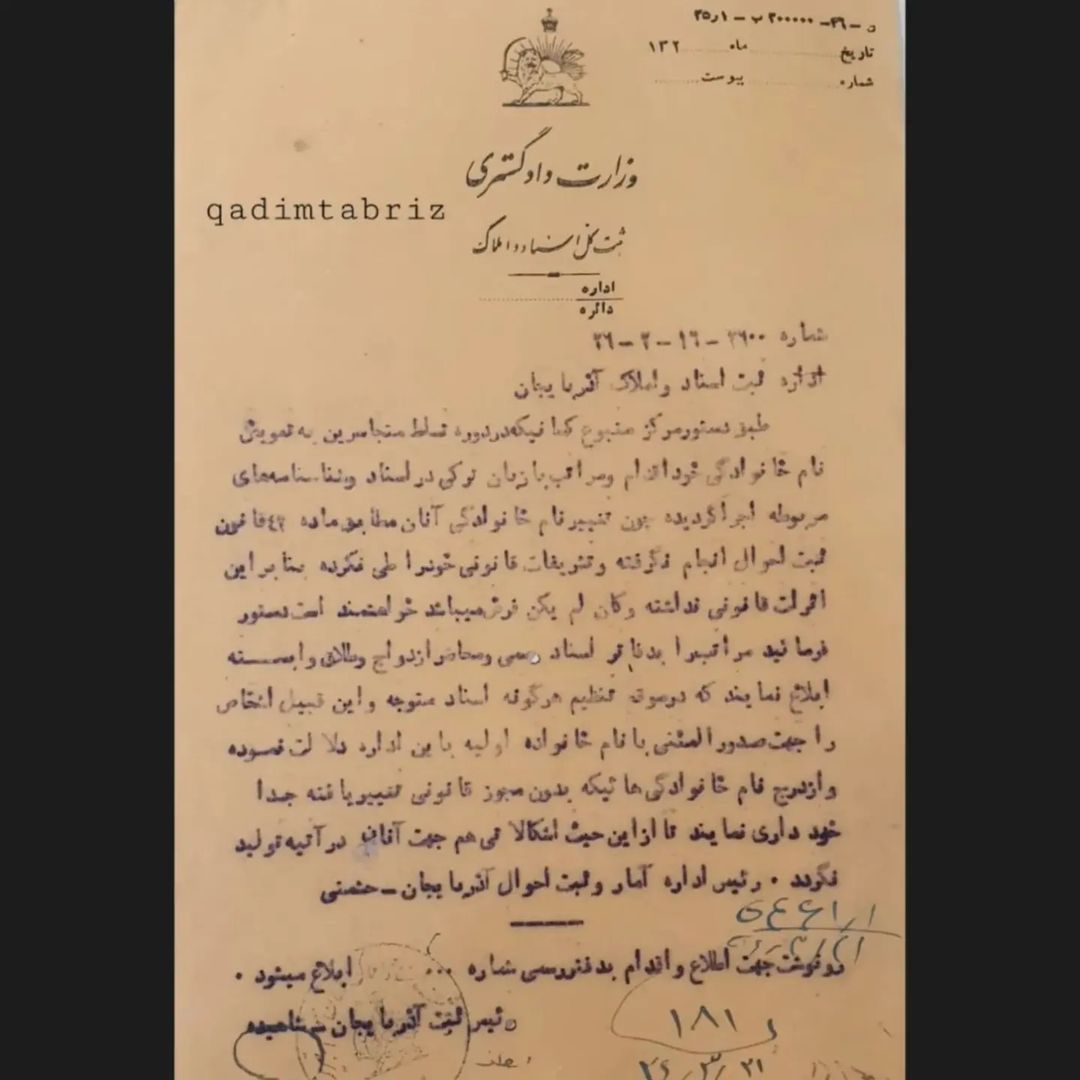 ن - ۳۶ - ۲۰۰۰۰۰ ب - ۱ر۲۵
تاریخ ماه ۱۳۲
شماره پیوست
وزارت دادگستری
qadimtabriz
ثبت کل اسناد و املاک
اداره
دائره
شماره ۲۶۰۰ - ۱۶ - ۲ - ۲۶
اداره ثبت اسناد و املاک آذربایجان
طبق دستور مرکز متبوع کسانیکه در دوره تسلط متجاسرین به تعویض
نام خانوادگی خود اقدام و مراتب بازبان ترکی در اسناد و شناسنامه‌های
مربوطه اجرا گردیده چون تغییر نام خانوادگی آنان مطابق ماده ۴۲ قانون
ثبت احوال انجام نگرفته و تشریفات قانونی خودرا طی نکرده بنابراین
اثرات قانونی نداشته و کان لم یکن فرض میباشد خواهشمند است دستور
فرمائید مراتب را بدفاتر اسناد رسمی و محاضر ازدواج و طلاق وابسته
ابلاغ نمایند که در موقع تنظیم هرگونه اسناد متوجه و این قبیل اشخاص
را جهت صدور المثنی با نام خانواده اولیه باین اداره دلالت نموده
و ازدرج نام خانوادگی هائیکه بدون مجوز قانونی تغییر یافته جدا
خود داری نمایند تا ازاین حیث اشکالاتی هم جهت آنان در آتیه تولید
نگردد . رئیس اداره آمار و ثبت احوال آذربایجان - حشمتی
رونوشت جهت اطلاع و اقدام بدفتر رسمی شماره ... ابلاغ میشود .
رئیس ثبت آذربایجان -
۱۸۱